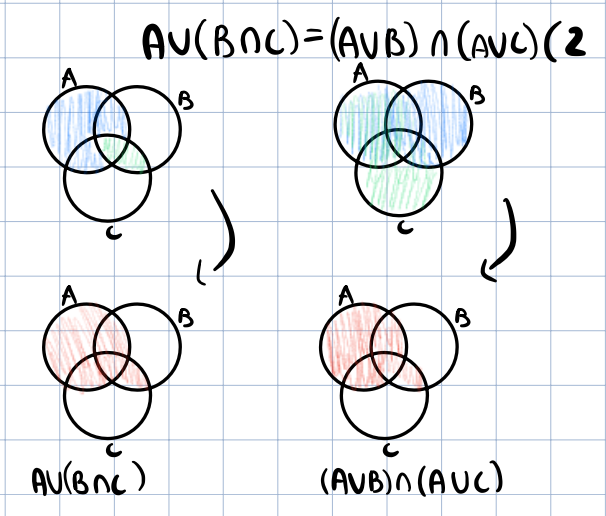 A∪(B∩C)=(A∪B)∩(A∪C)(2
A
B
C
A
B
C
A
B
C
A
B
C
A∪(B∩C)
(A∪B)∩(A∪C)